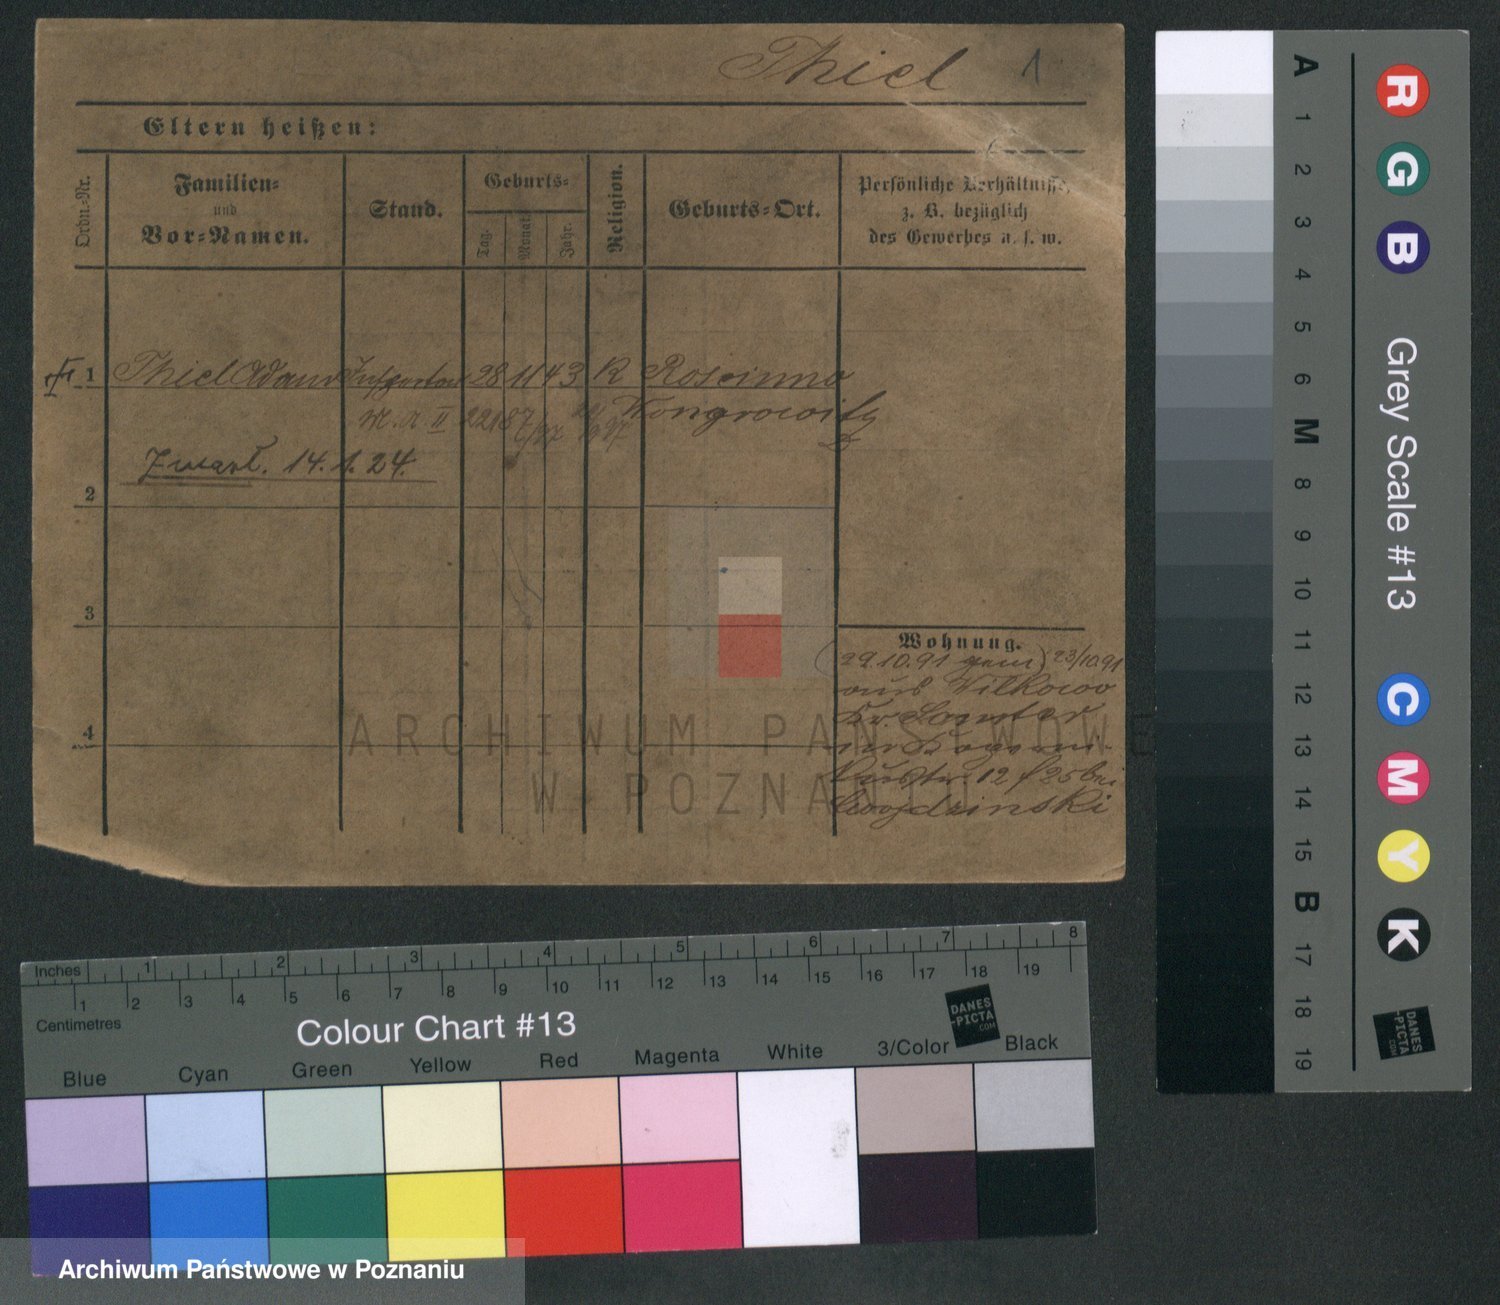 Thiel 1
Eltern heißen:
Ordn.-Nr.
Familien-
und
Vor-Namen.
Stand.
Geburts-
Tag.
Monat
Jahr.
Religion.
Geburts-Ort.
Persönliche Verhältnisse,
z. B. bezüglich
des Gewerbes u. s. w.
1 Thiel Adam 28 11 43 K Roscinno
Wongrowitz
14. 1. 24.
2
3
4
Wohnung.
(29.10.91 gem) 23/10 91
aus Wilkowo
Kr. Samter
12 bei
Wojdzinski
ARCHIWUM PAŃSTWOWE
W POZNANIU
Inches 1 2 3 4 5 6 7 8
1 2 3 4 5 6 7 8 9 10 11 12 13 14 15 16 17 18 19
Centimetres
Colour Chart #13
DANES
-PICTA
.COM
Blue Cyan Green Yellow Red Magenta White 3/Color Black
Archiwum Państwowe w Poznaniu
A 1 2 3 4 5 6 M 8 9 10 11 12 13 14 15 B 17 18 19
R G B Grey Scale #13 C M Y K
DANES
-PICTA
.COM